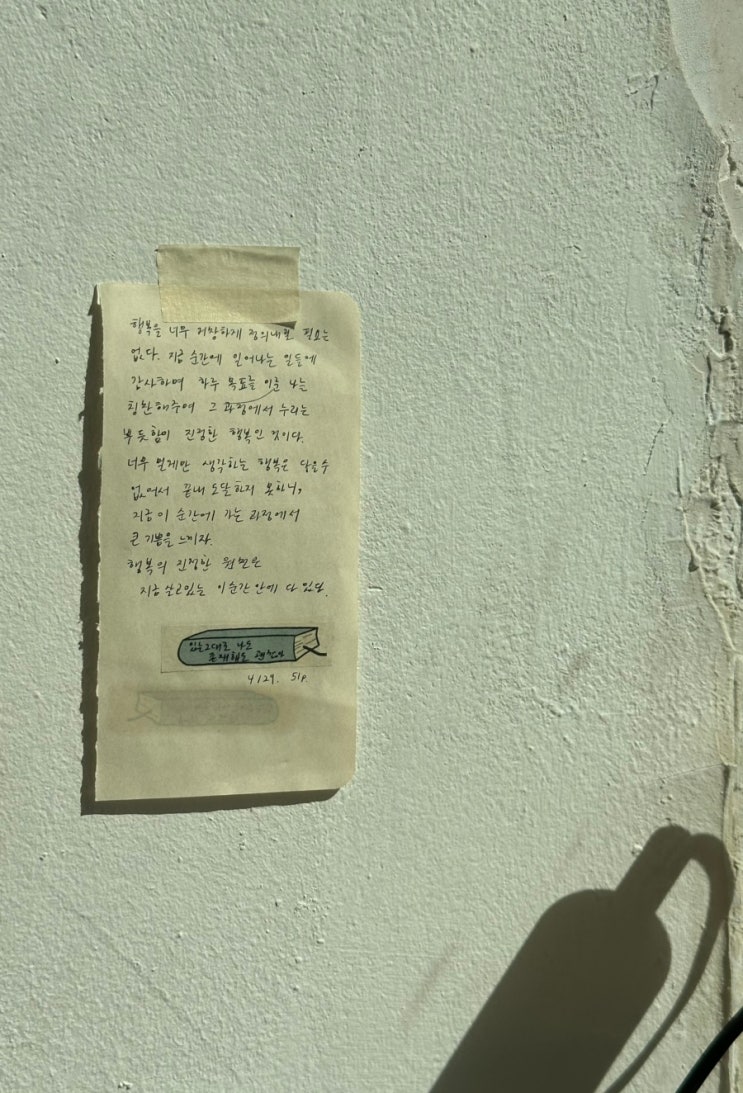 행복을 너무 거창하게 정의내릴 필요는
없다. 지금 순간에 일어나는 일들에
감사하며 하루 목표를 이룬 나는
칭찬해주며 그 과정에서 누리는
뿌듯함이 진정한 행복인 것이다.
너무 멀게만 생각하는 행복은 닿을 수
없어서 끝내 도달하지 못하니,
지금 이 순간에 가는 과정에서
큰 기쁨을 느끼자.
행복의 진정한 원천은
지금 살고있는 이 순간 안에 다 있다.
있는그대로 나로
존재해도 괜찮아
4/29. 51p.